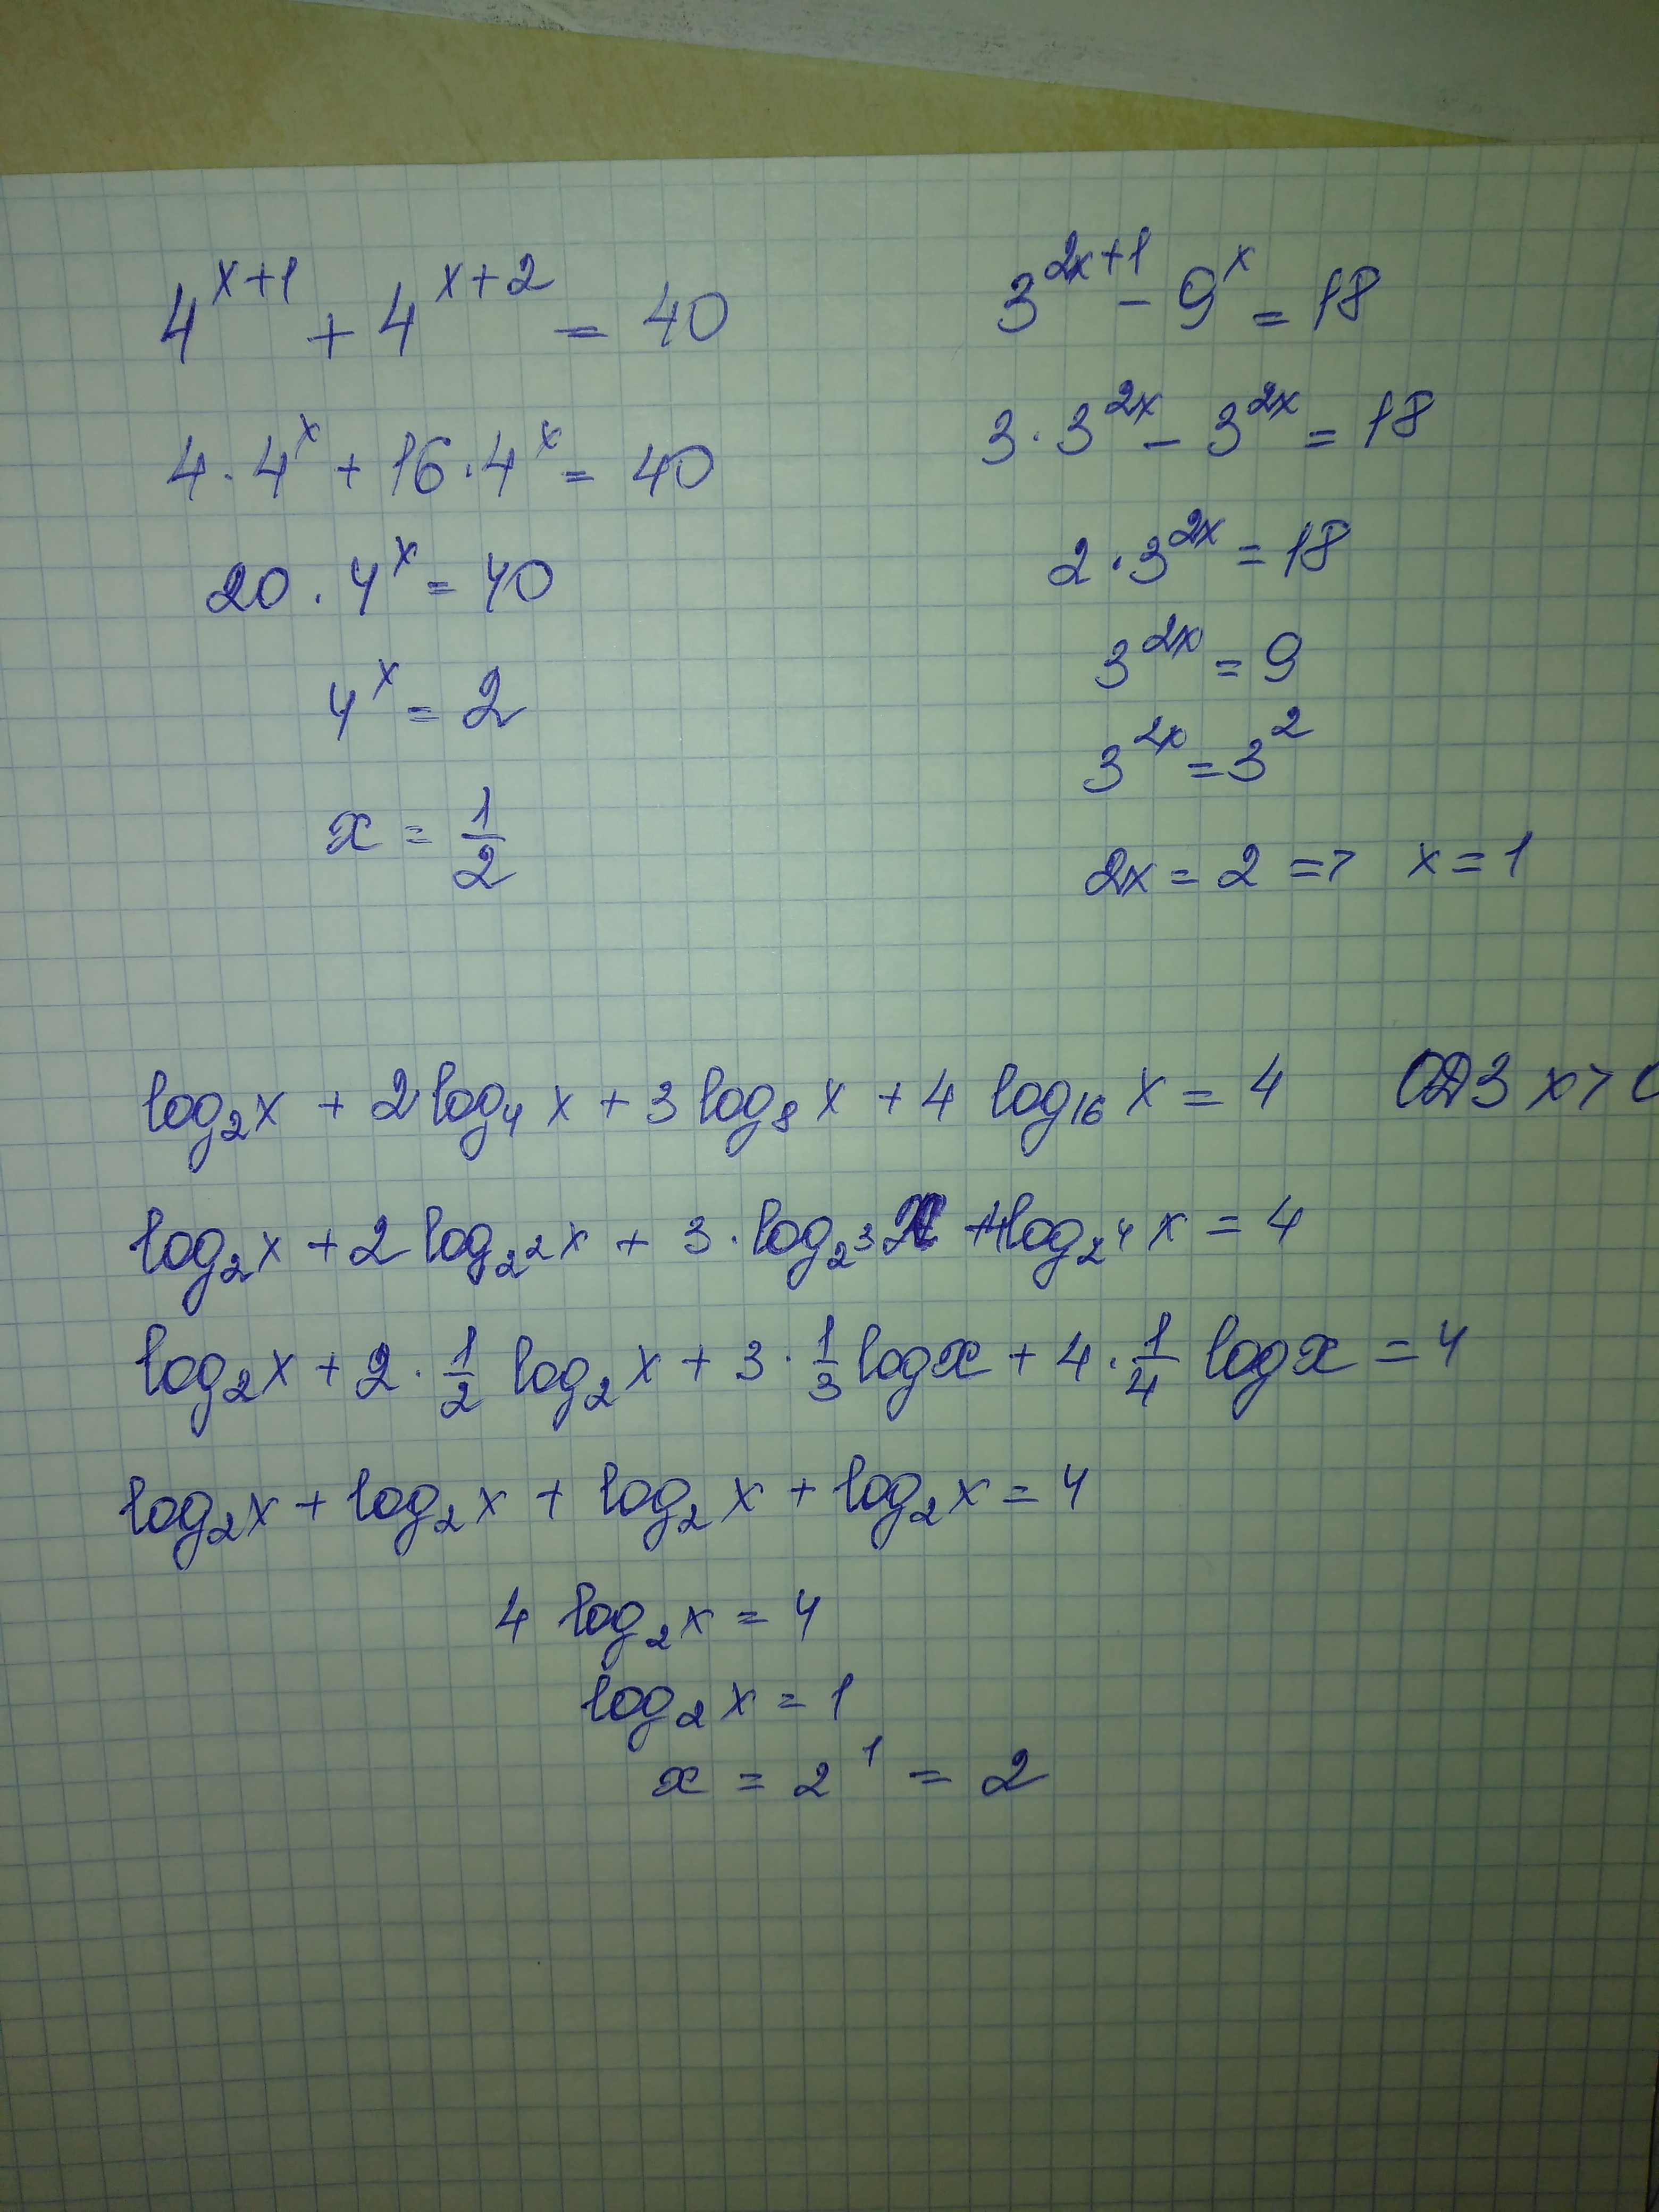 4^{x+1} + 4^{x+2} = 40
4 · 4^x + 16 · 4^x = 40
20 · 4^x = 40
4^x = 2
x = 1/2
3^{2x+1} - 9^x = 18
3 · 3^{2x} - 3^{2x} = 18
2 · 3^{2x} = 18
3^{2x} = 9
3^{2x} = 3^2
2x = 2 => x = 1
log_2 x + 2 log_4 x + 3 log_8 x + 4 log_16 x = 4 ОДЗ x > 0
log_2 x + 2 log_{2^2} x + 3 · log_{2^3} x + 4 log_{2^4} x = 4
log_2 x + 2 · 1/2 log_2 x + 3 · 1/3 log x + 4 · 1/4 log x = 4
log_2 x + log_2 x + log_2 x + log_2 x = 4
4 log_2 x = 4
log_2 x = 1
x = 2^1 = 2